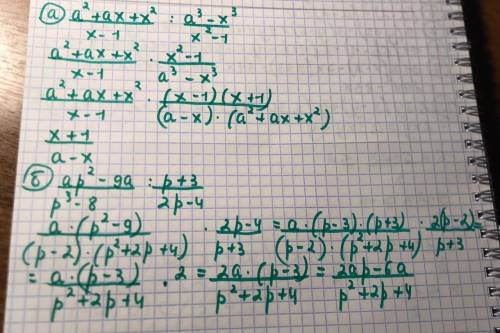 а) (a²+ax+x²)/(x-1) : (a³-x³)/(x²-1)
(a²+ax+x²)/(x-1) · (x²-1)/(a³-x³)
(a²+ax+x²)/(x-1) · ((x-1)(x+1))/((a-x)·(a²+ax+x²))
(x+1)/(a-x)
б) (ap²-9a)/(p³-8) : (p+3)/(2p-4)
(a·(p²-9))/((p-2)·(p²+2p+4)) · (2p-4)/(p+3) = (a·(p-3)·(p+3))/((p-2)·(p²+2p+4)) · (2(p-2))/(p+3) =
= (a·(p-3))/(p²+2p+4) · 2 = (2a·(p-3))/(p²+2p+4) = (2ap-6a)/(p²+2p+4)